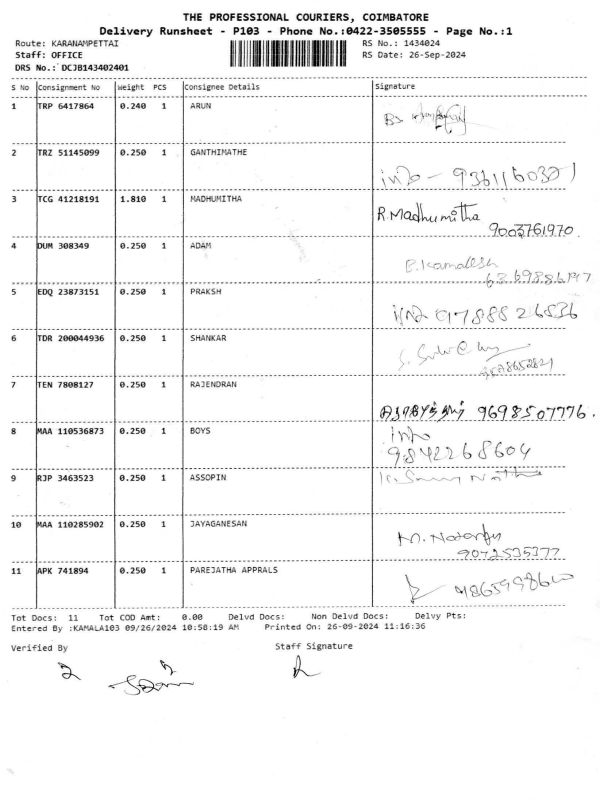 THE PROFESSIONAL COURIERS, COIMBATORE
Delivery Runsheet - P103 - Phone No.:0422-3505555 - Page No.:1
Route: KARANAMPETTAI RS No.: 1434024
Staff: OFFICE RS Date: 26-Sep-2024
DRS No.: DCJB143402401
S No Consignment No Weight PCS Consignee Details Signature
1 TRP 6417864 0.240 1 ARUN
2 TRZ 51145099 0.250 1 GANTHIMATHE
3 TCG 41218191 1.810 1 MADHUMITHA R.Madhumitha
9003761970.
4 DUM 308349 0.250 1 ADAM
5 EDQ 23873151 0.250 1 PRAKSH
6 TDR 200044936 0.250 1 SHANKAR
7 TEN 7808127 0.250 1 RAJENDRAN 9698507776.
8 MAA 110536873 0.250 1 BOYS
9842268604
9 RJP 3463523 0.250 1 ASSOPIN
10 MAA 110285902 0.250 1 JAYAGANESAN
11 APK 741894 0.250 1 PAREJATHA APPRALS
Tot Docs: 11 Tot COD Amt: 0.00 Delvd Docs: Non Delvd Docs: Delvy Pts:
Entered By :KAMALA103 09/26/2024 10:58:19 AM Printed On: 26-09-2024 11:16:36
Verified By Staff Signature